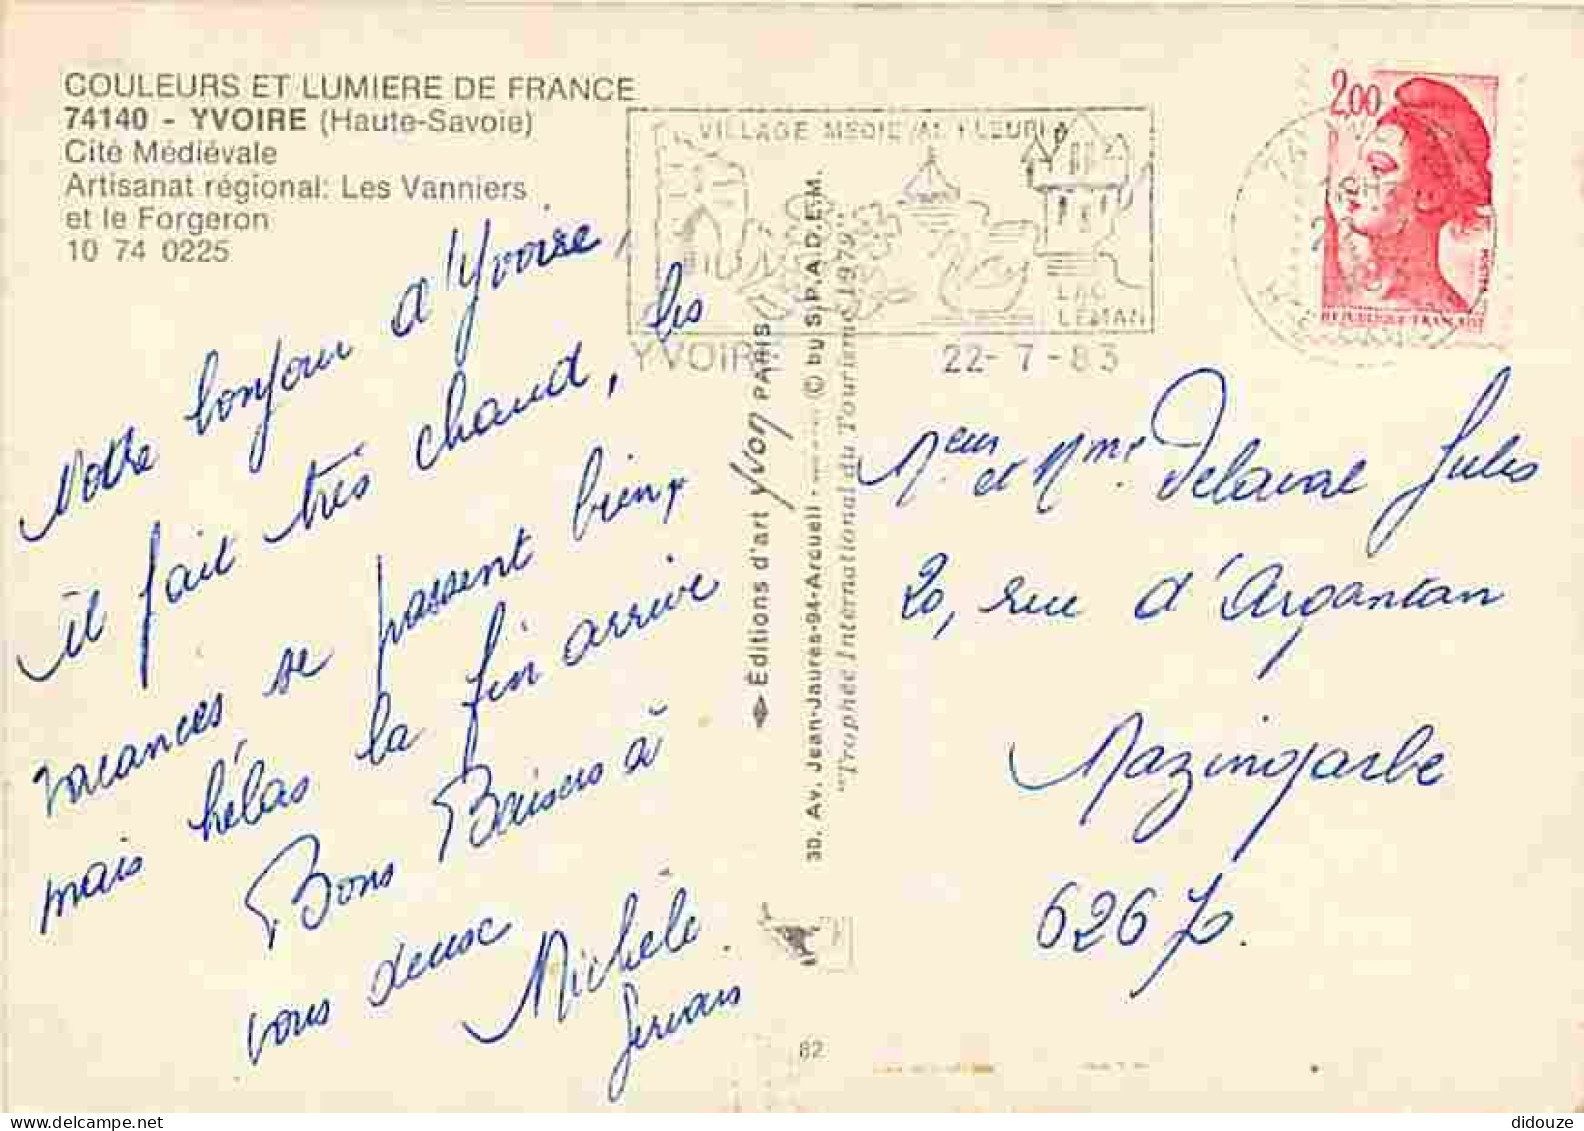 COULEURS ET LUMIERE DE FRANCE
74140 - YVOIRE (Haute-Savoie)
Cité Médiévale
Artisanat régional: Les Vanniers
et le Forgeron
10 74 0225
VILLAGE MEDIEVAL FLEURI
LAC
LEMAN
YVOIRE
22-7-83
2,00
REPUBLIQUE FRANÇAISE
Notre bonjour d'Yvoire,
il fait très chaud, les
vacances se passent bien,
mais hélas la fin arrive
Bons Baisers à
vous deux
Michèle
Gervais
Editions d'art yvon PARIS
30, Av. Jean-Jaurès-94-Arcueil - © by S.P.A.D.E.M.
"Trophée International du Tourisme 1979".
82
Meur et Mme Delaval Jules
20, rue d'Argantan
Mazingarbe
62670.
didouze